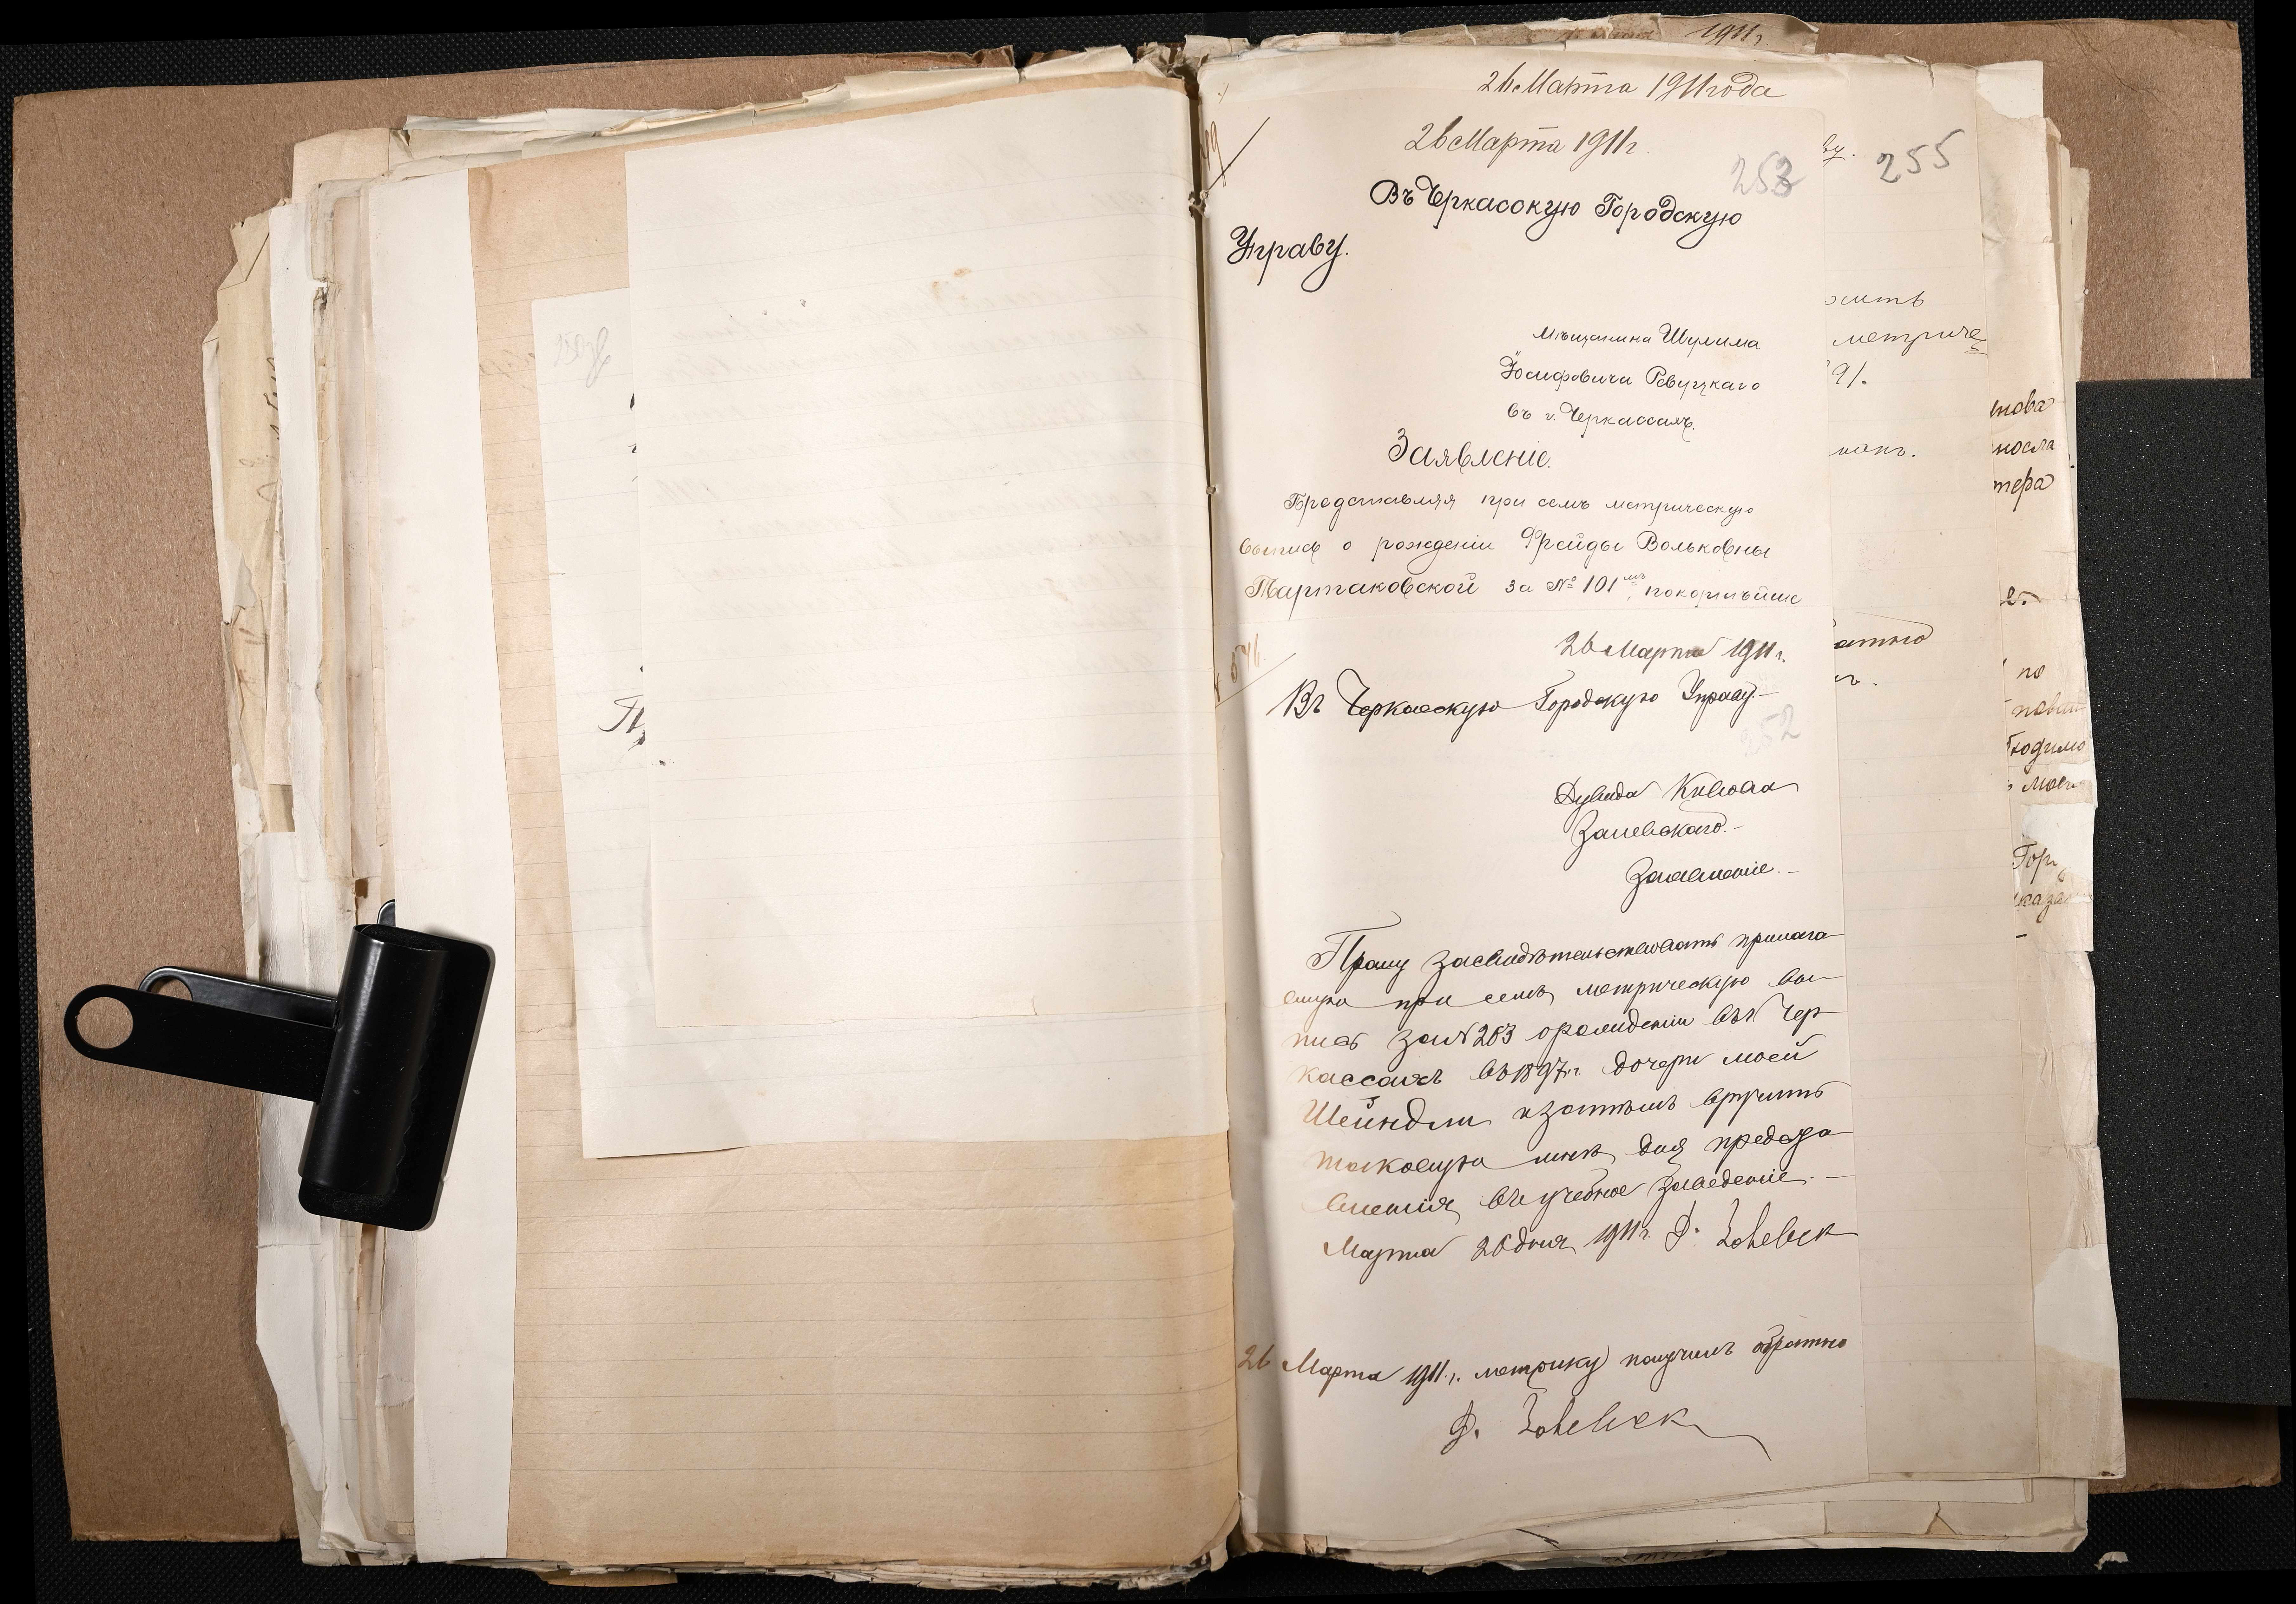 1911г.
26 Марта 1911 года
26 Марта 1911г.
253
255
Въ Черкасскую Городскую
Управу.
Мѣщанина Шулима
Іосифовича Ревуцкаго
въ г. Черкассахъ.
Заявленіе.
Представляя при семъ метрическую
выпись о рожденіи Фрейды Вольковны
Тартаковской за № 101мъ, покорнѣйше
26 Марта 1911г.
Въ Черкасскую Городскую Управу.-
252
Дувида Кивова
Залевскаго.-
Заявленіе.-
Прошу засвидѣтельствовать прилага
емую при семъ метрическую вы-
пись за № 203 о рожденіи въ г. Чер
кассахъ въ 1897г. дочери моей
Шейндли и затѣмъ вручить
таковую мнѣ для предста
вленія въ учебное заведеніе.-
Марта 26 дня 1911г. Д. Залевск
26 Марта 1911г. метрику получилъ обратно
Д. Залевск
метриче
91.
нова
тера
по
Гор
каза